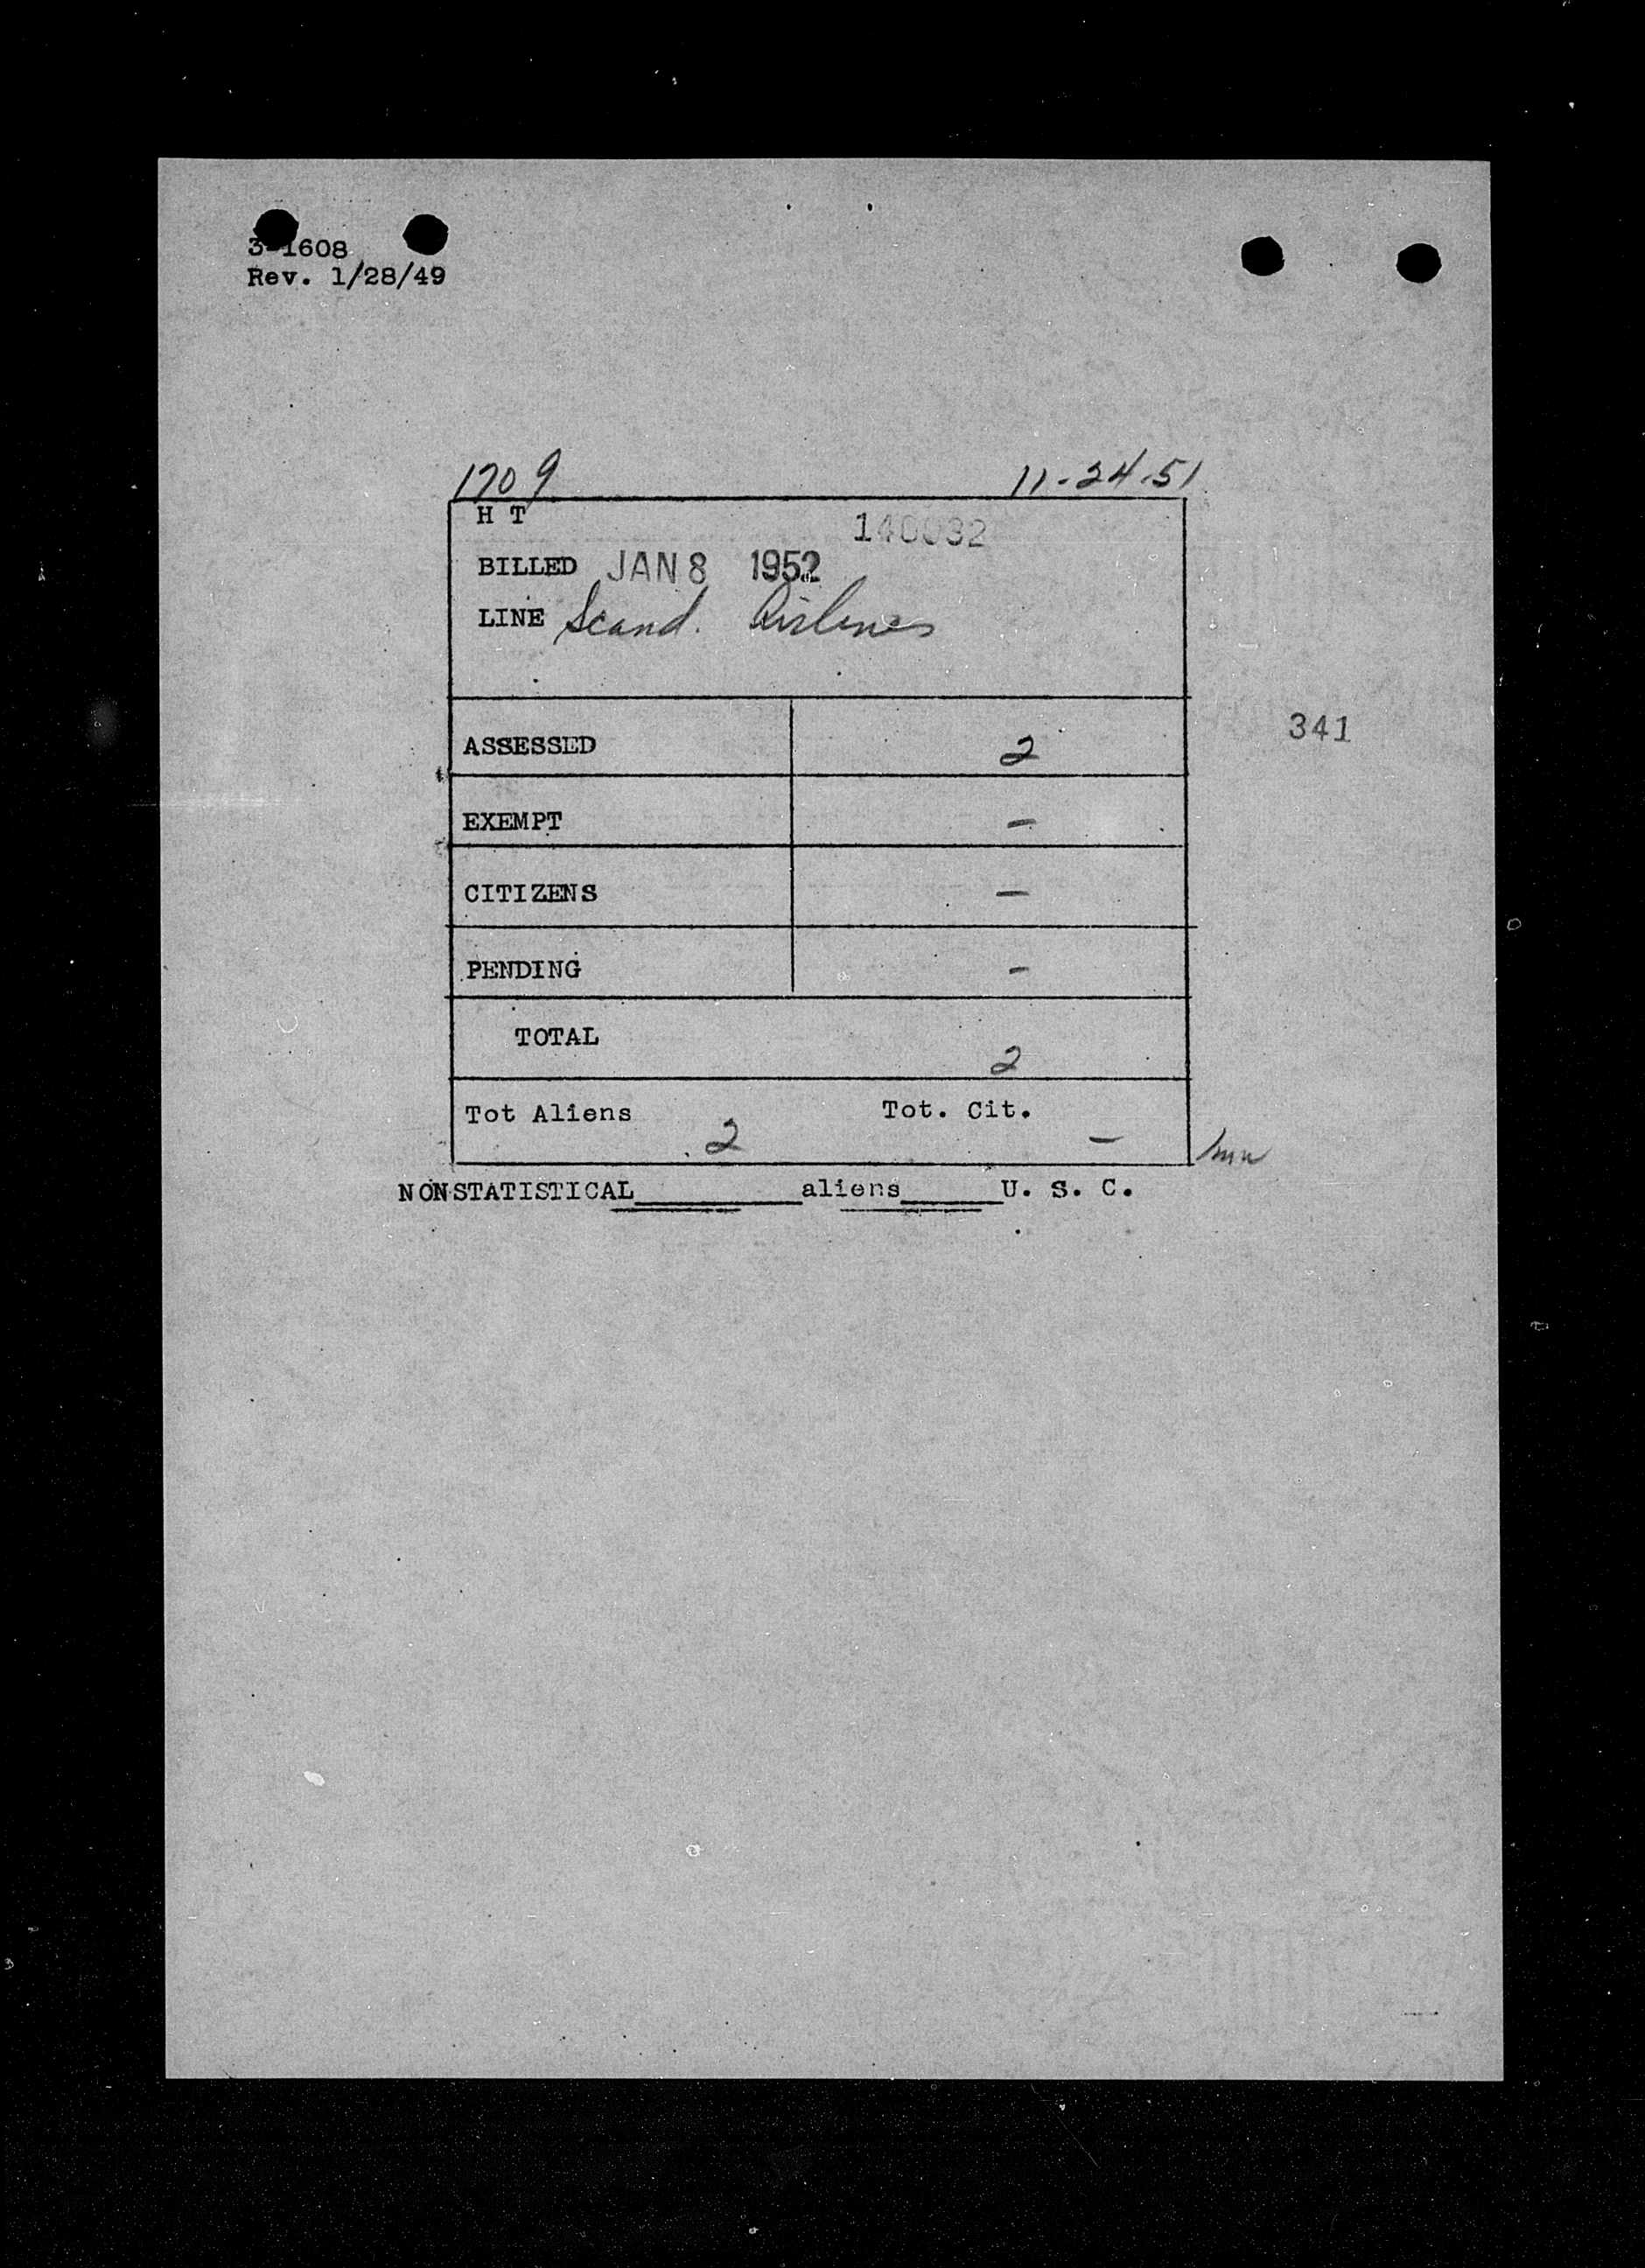 3-1608
Rev. 1/28/49
1709 11-24-51
H T
140032
BILLED JAN 8 1952
LINE Scand. Airlines
341
ASSESSED 2
EXEMPT -
CITIZENS -
PENDING -
TOTAL 2
Tot Aliens 2 Tot. Cit. -
NONSTATISTICAL________aliens______U. S. C.